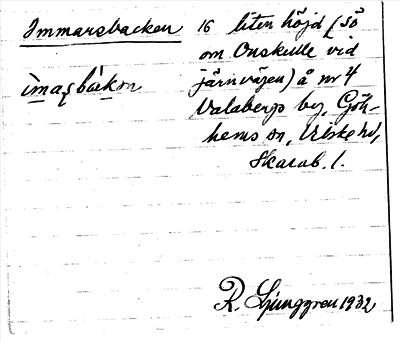 Immarsbacken 16 liten höjd (sö
om Onskulle vid
ìmaṣbákən järnvägen) å nr 4
Valabergs by, Göt-
hems sn, Vilske hd,
Skarab. l.
R. Ljunggren 1932